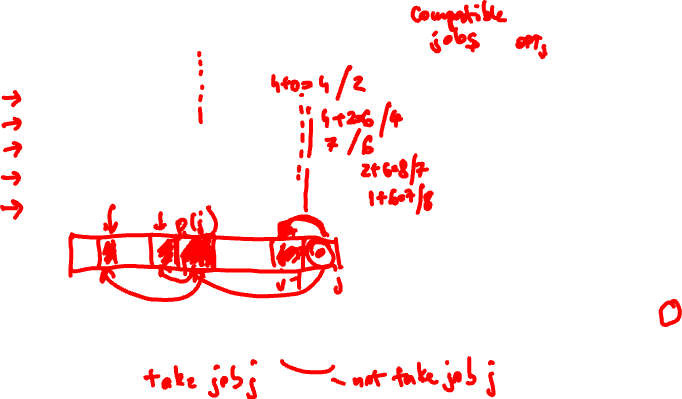 compatible
jobs OPTj
4+0=4/2
4+2=6/4
7/6
2+6=8/7
1+6=7/8
p(j)
j
take job j
not take job j